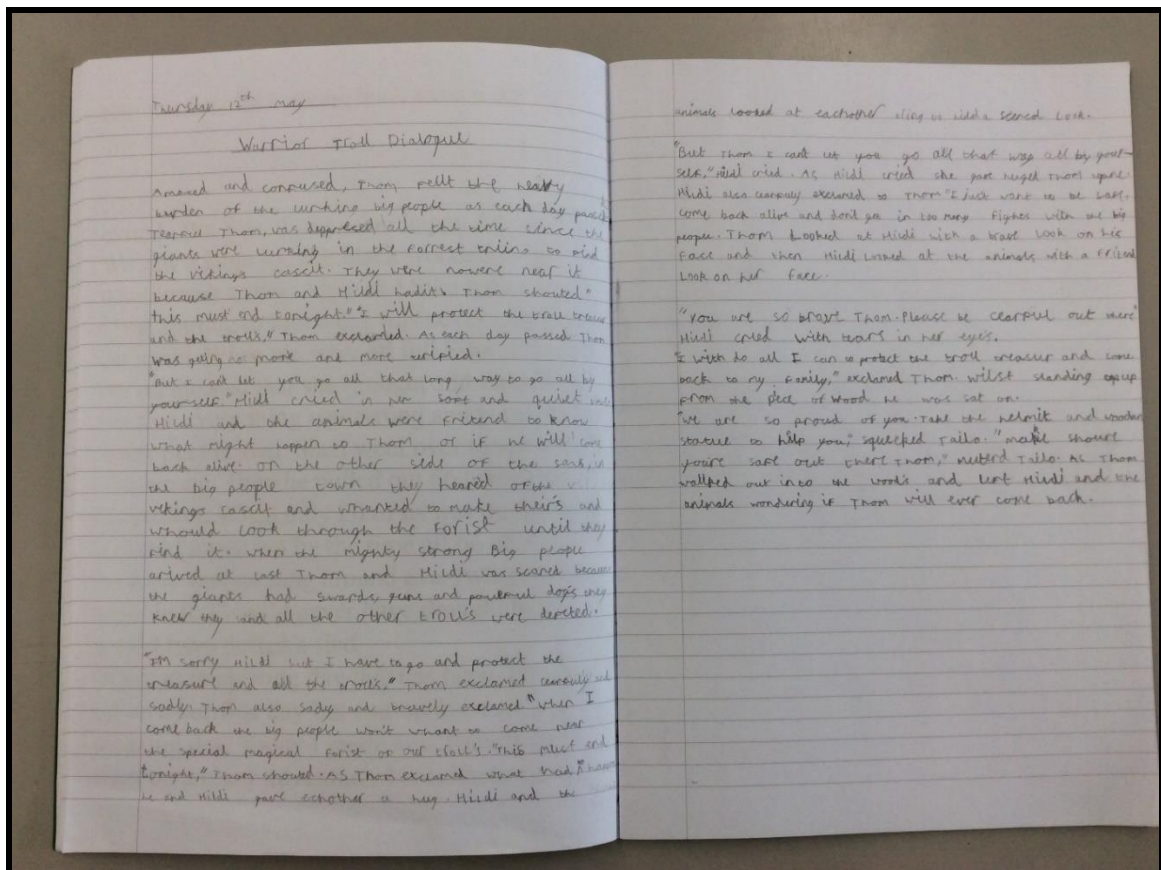 Thursday 12th may
Warrior Troll Dialogue
Amazed and confused, Thom fellt the heavy
burden of the lurking big people as each day passed
Tearful Thom, was deppresed all the time since the
giants were lurking in the Forrest to find
the vikings casclt. They were nowere near it
because Thom and Hildi Thom shouted"
this must end tonight." "I will protect the troll
and the trolls," Thom exclamed. As each day passed Thom
was more and more
"But I cant let you go all that long way to go all by
your-self" Hildi cried in her soft and quiet
Hildi and the animals were to know
what might happen to Thom or if he will come
back alive. on the other side of the in
the big people town they heared of the
vikings casclt and whanted to make their's and
whould look through the Forist until they
find it. when the mighty strong Big people
arived at last Thom and Hildi was scared because
the giants had swards, guns and powerful dog's they
knew they and all the other troll's were
"I'M sorry Hildi but I have to go and protect the
treasure and all the troll's." Thom exclamed and
sadly. Thom also sadly and bravely exclamed "when I
come back the big people won't whant to come near
the special magical Forist or our troll's. "This must end
tonight," Thom shouted. AS Thom exclamed what had
he and Hildi gave echother a hug. Hildi and the
animals looked at eachother a scared Look.
"But Thom I cant let you go all that way all by your-
self," Hildi cried. As Hildi cried she Thom
Hildi also exclamed to Thom "I just want to be safe.
come back alive and don't get in too many fights with the big
people. Thom Looked at Hildi with a brave look on his
face and then Hildi looked at the animals with a
Look on her face.
"You are so brave Thom. Please be out there"
Hildi cried with tears in her eye's.
"I with do all I can to protect the troll and come
back to my family," exclamed Thom. wilst standing up
from the of wood he was sat on.
"We are so proud of you. Take the helmit and wooden
statue to help you," squecked Tailo. "make shoure
you're safe out there Thom," Tailo. As Thom
out into the wood's and left Hildi and the
animals wondering if Thom will ever come back.